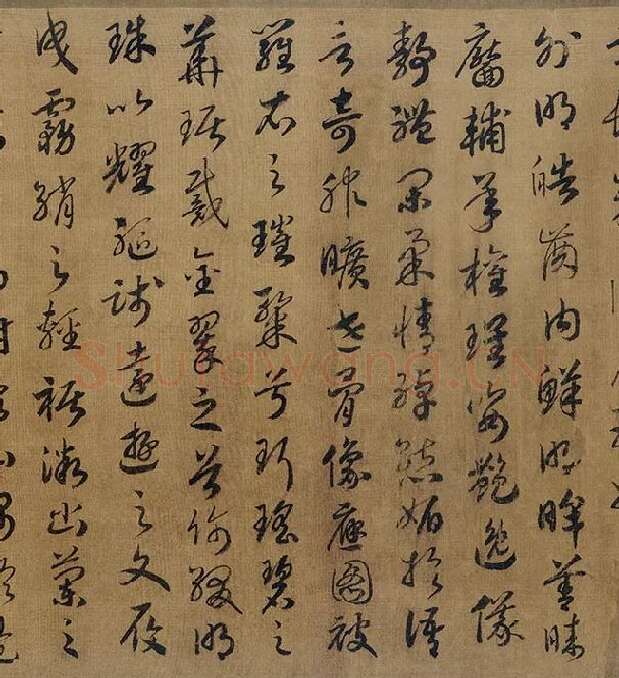 外朗皓齒內鮮明眸善睞
靨輔承權瑰姿艷逸儀
靜體閑柔情綽態媚於語
言奇服曠世骨像應圖被
羅衣之璀粲兮珥瑤碧之
華琚戴金翠之首飾綴明
珠以耀軀踐遠遊之文履
曳霧綃之輕裾微幽蘭之